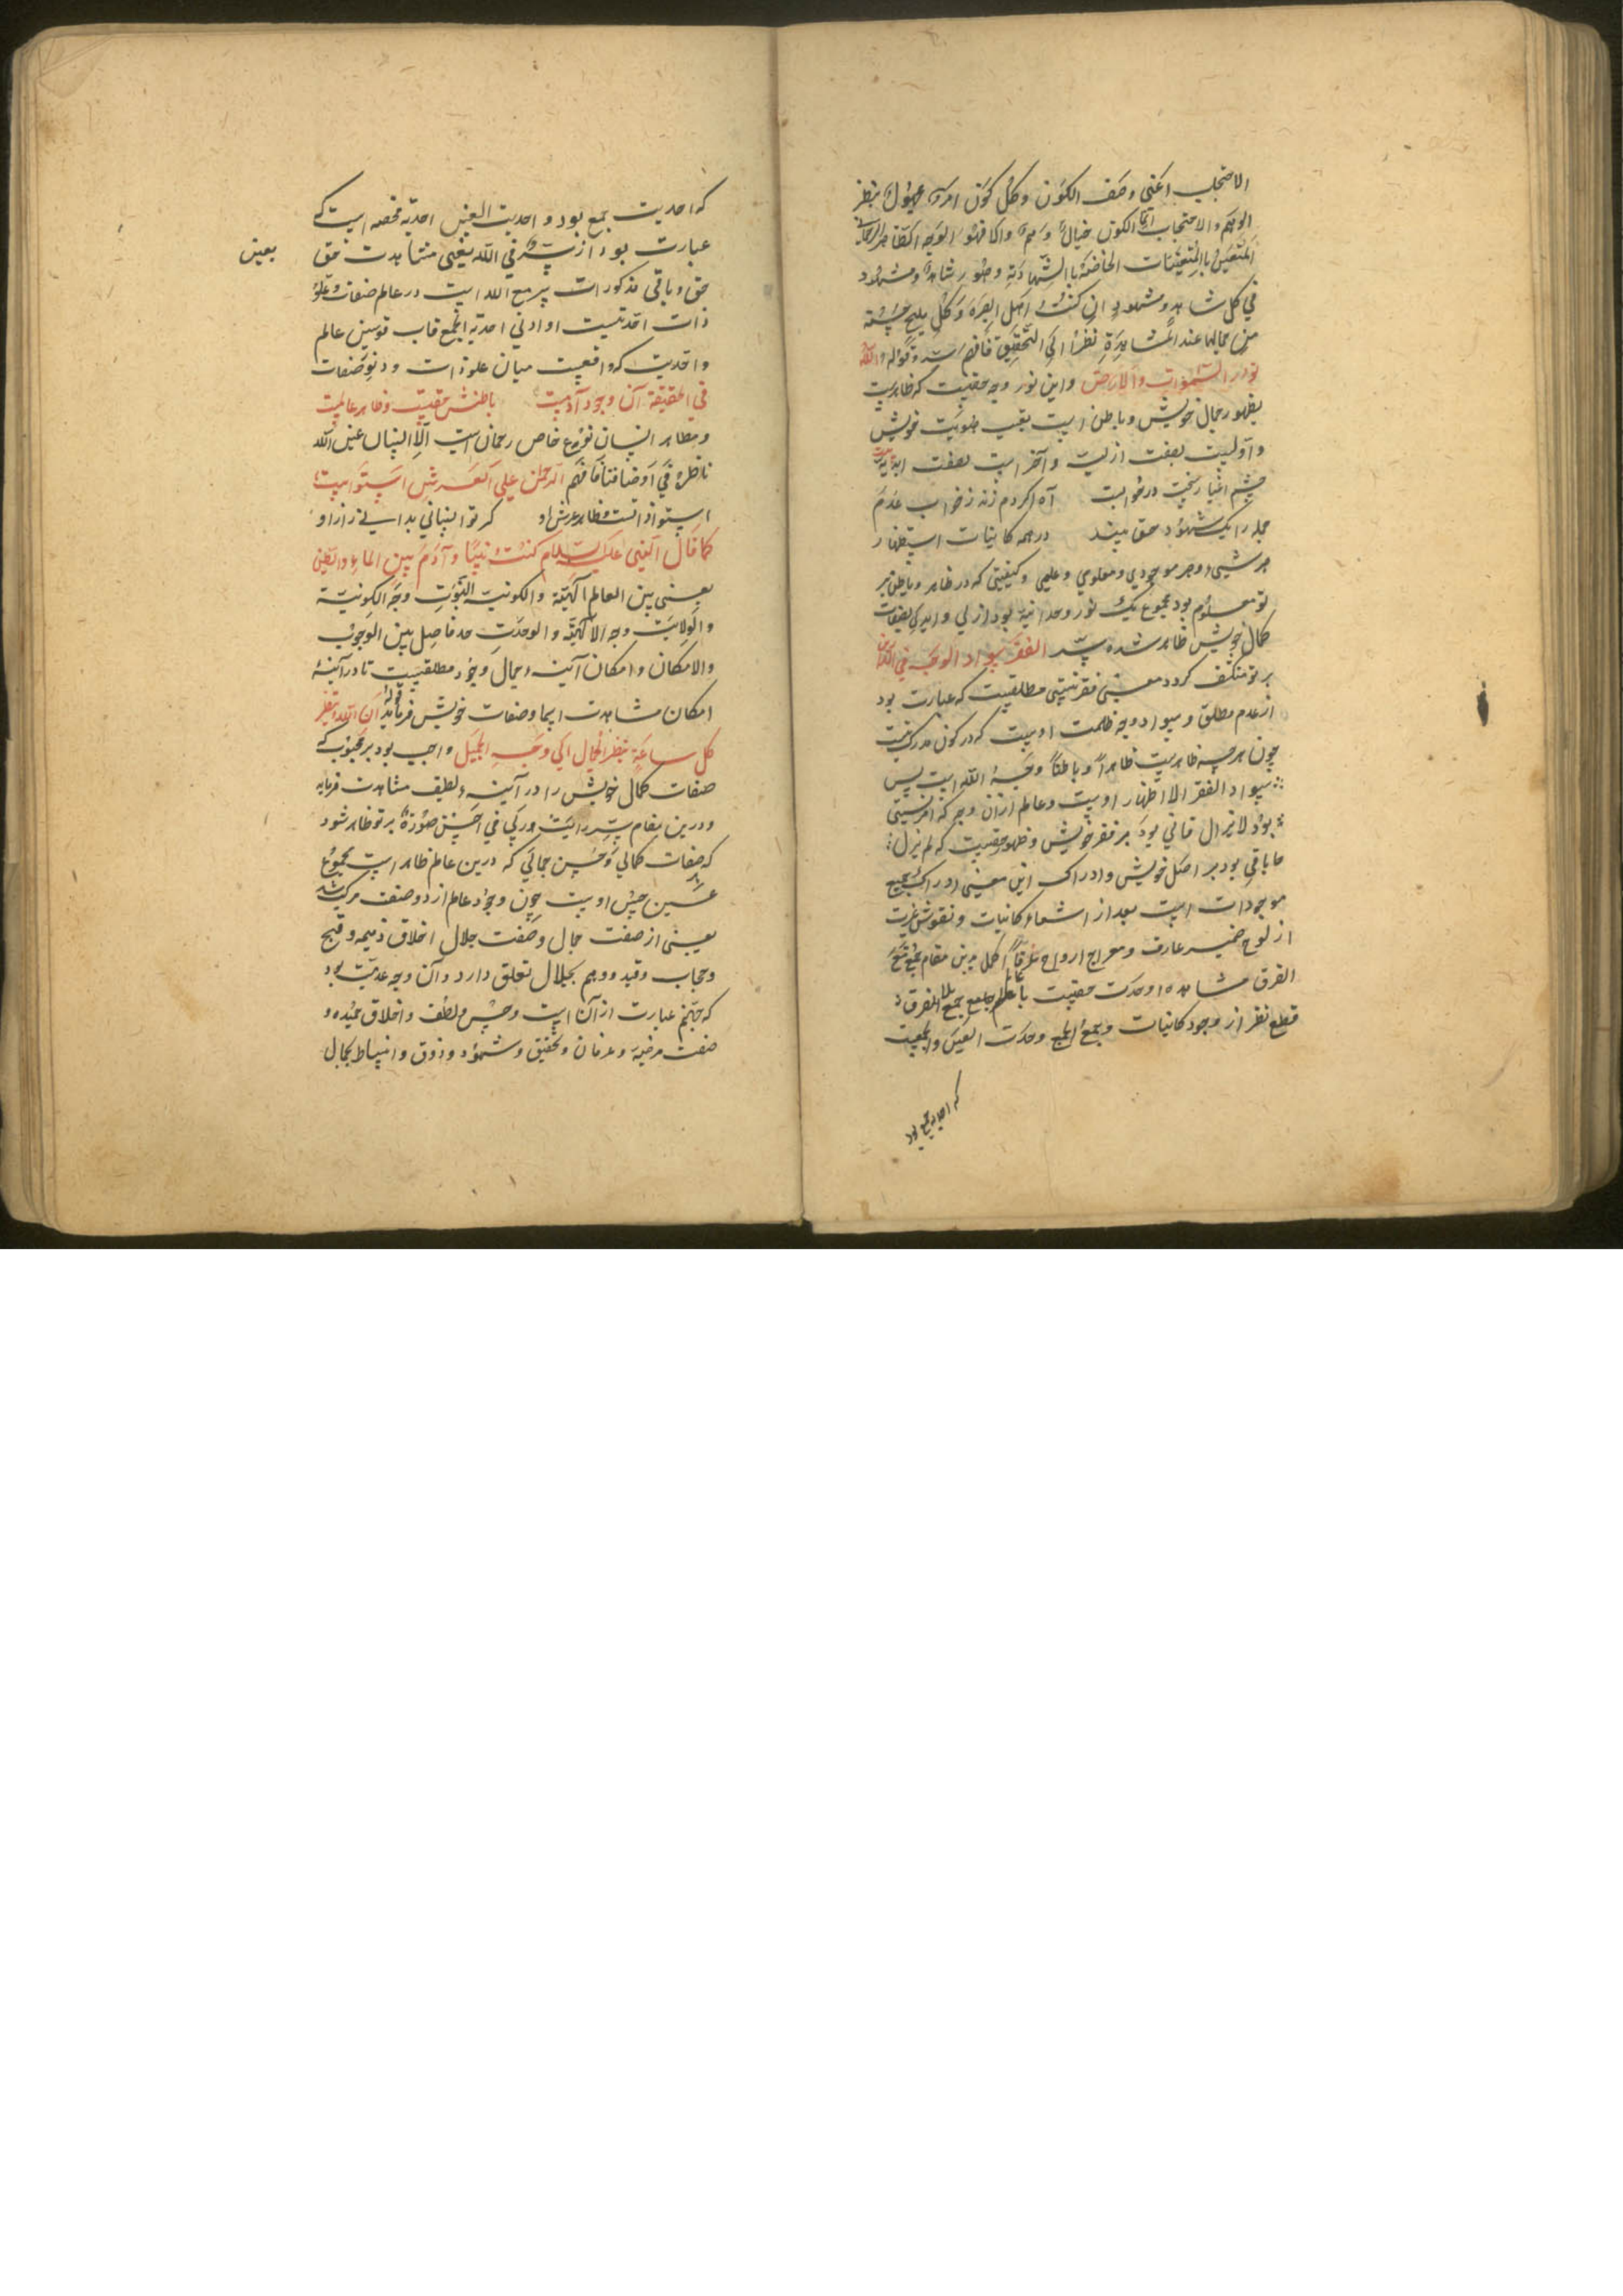 الاحتجاب اعنی وصف الکون وکل کون امر مجهول بنظر
الوهم والاحتجاب انما الکون خیال وهم واکافهو الوجه الظاهر
المتعین بالمتعینات الخاضة بالشهادیة وظهور شاهد ومشهود
فی کل شاهد ومشهود ان کنت اهل البصرة وکل ملیح حسنه
من جمالها عند المشاهدة نظرا الی التحقیق فافهم سر قوله الله
نور السموات والارض واین نور وجه حقیست که ظاهرست
بظهور جمال خویش وباطن است بغیب هویت خویش
واولیست بصفت ازلیت وآخر است بصفت ابدیة
چشم اغیار بخت درخوابست آه اگر دم زند ز خواب عدم
جمله را یک شهود حق بیند در همه کاینات استظهار
هر شیء وهر موجودی ومعلومی وعلمی وکیفیتی که در ظاهر وباطن بر
تو معلوم بود مجموع یک نور وحدانیة بود ازلی وابدی بصفات
کمال خویش ظاهر شده سر الفقر سواد الوجه فی الدارین
بر تو منکشف کردد معنی فقر نیستی مطلقیست که عبارت بود
از عدم مطلق وسواد وجه ظلمت اوست که در کون مدرک نیست
چون هرچه ظاهرست ظاهرا وباطنا وجه الله است پس
سواد الفقر الا اظهار اوست وعالم ازان وجه که آفرینشی
بود لایزال فانی بود بر فقر خویش وظهور حقیست که لم یزل
ما باقی بود بر اصل خویش وادراک این معنی ادراک جمیع
موجودات است بعد از اسماء کاینات ونقوش غیریت
از لوح ضمیر عارف ومعراج ارواح اکمل درین مقام جمع
الفرق مشاهده وحدت حقیست با عالم جامع بجمیع الفرق
قطع نظر از وجود کاینات وجمع الجمع وحدت العین والجمعیت
که احدیت جمع بود
که احدیت جمع بود واحدیت العین احدیة محضه است که
عبارت بود از سر فی الله یعنی مشاهدت حق بعین
حق وباقی مذکورات سر مع الله است در عالم صفات وعلو
ذات احدتیست او ادنی احدیة الجمع قاب قوسین عالم
واحدیت که واقعیست میان علو ذات ودنو صفات
فی الحقیقة آن وجود آدمیست باطنش حقیست وظاهر عالمیست
ومظاهر انسان نوع خاص رحمان است الانسان عین الله
ناظرة فی اوصافنا فافهم الرحمن علی العرش استوی است
استوا ذاتست وظاهر عرش او کر تو انسانی بدانی راز او
کما قال النبی علیه السلام کنت نبیا وآدم بین الماء والطین
یعنی بین العالم الالهیة والکونیة النبوت وجه الکونیة
والولایت وجه الالهیة والوحدت حد فاصل بین الوجوب
والامکان وامکان آینه جمال وجود مطلقیست تا در آینة
امکان مشاهدت اسما وصفات خویش فرماید قوله ان الله ینظر
کل ساعة بنظر الجمال الی وجه الجمیل واجب بود بر محبوب که
صفات کمال خویش را در آینه لطیف مشاهدت فرماید
ودرین مقام سر رایت ربی فی احسن صورة بر تو ظاهر شود
که صفات کمالی وحسن جمالی که درین عالم ظاهر است مجموع
عین حسن اوست چون وجود عالم از دو صفت مرکب شد
یعنی از صفت جمال وصفت جلال اخلاق ذمیمه وقبح
وحجاب وقید ووهم بجلال تعلق دارد وآن وجه عدمیت بود
که جهنم عبارت از آن است وحسن ولطف واخلاق حمیده و
صفت مرضیه وعرفان وتحقیق وشهود وذوق وانبساط بجمال